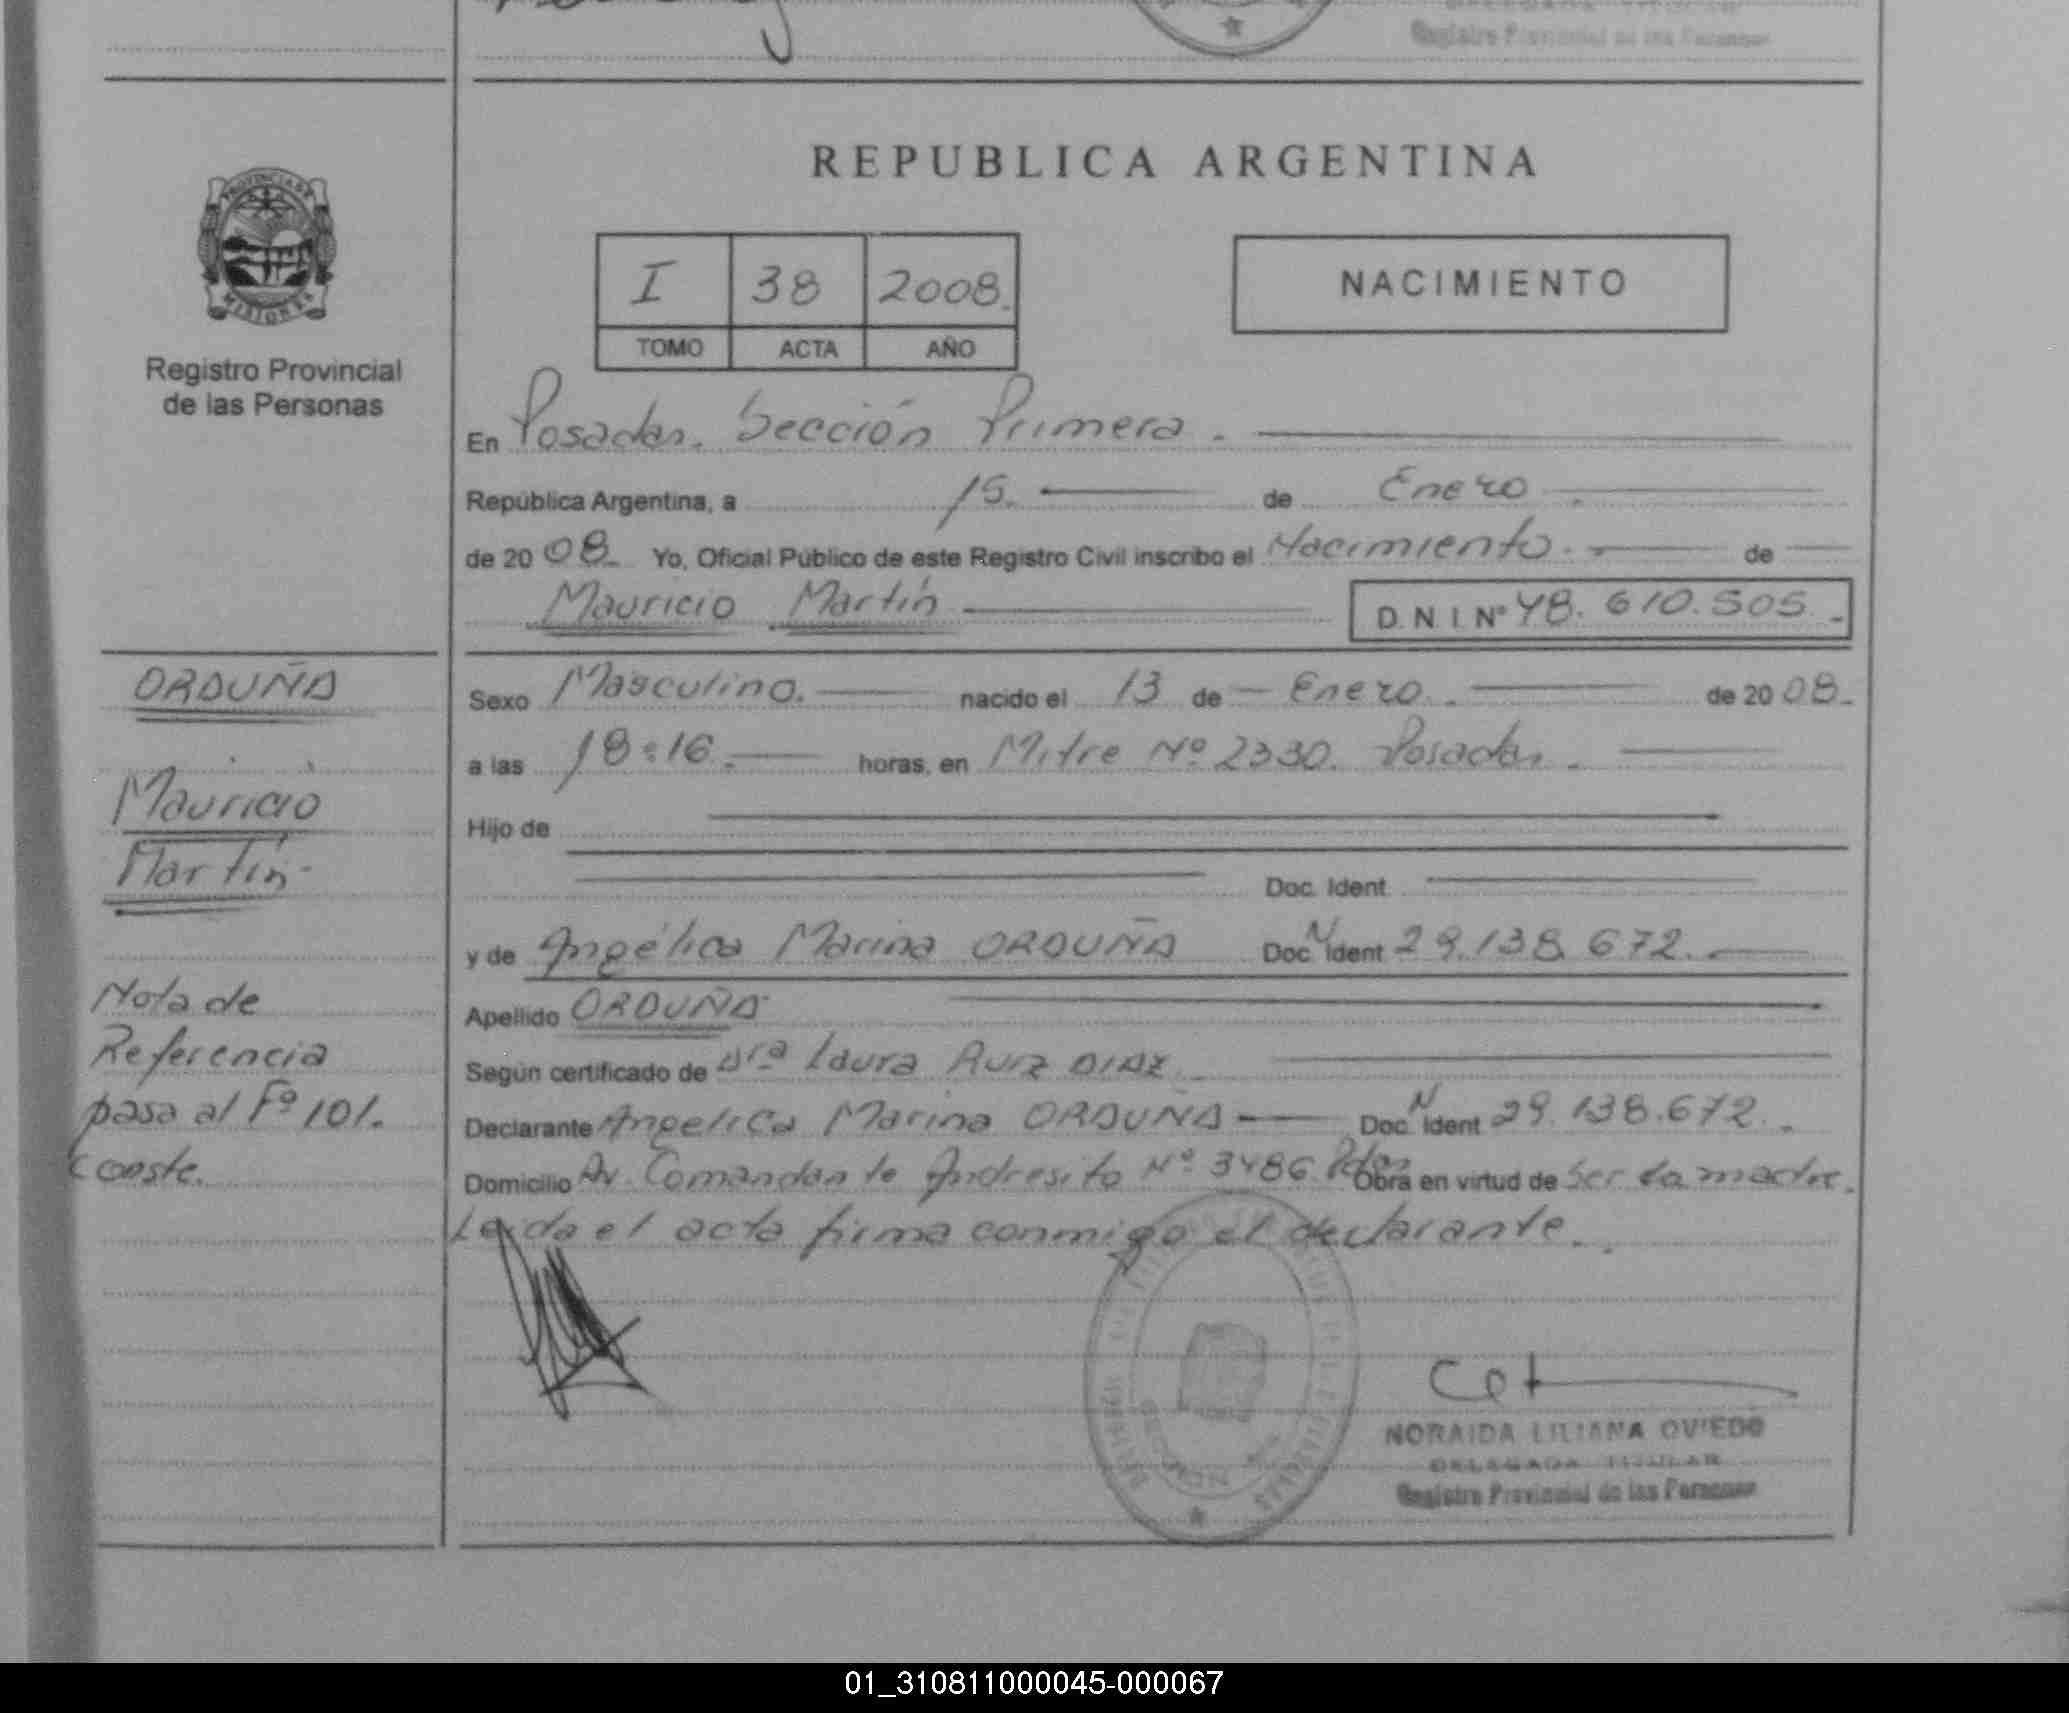 Registro Provincial de las Personas
REPUBLICA ARGENTINA
PROVINCIA DE
MISIONES
Registro Provincial
de las Personas
I 38 2008.
TOMO ACTA AÑO
NACIMIENTO
En Posadas. Sección Primera.
República Argentina, a 15. de Enero
de 20 08. Yo, Oficial Público de este Registro Civil inscribo el Nacimiento. de
Mauricio Martín D.N.I. Nº 48.610.505.
ORDUÑA
Mauricio
Martín.
Nota de
Referencia
pasa al Fº 101.
Conste.
Sexo Masculino. nacido el 13 de Enero. de 20 08.
a las 18:16. horas, en Mitre Nº 2330. Posadas.
Hijo de
Doc. Ident
y de Angélica Marina ORDUÑA Doc. N Ident 29.138.672.
Apellido ORDUÑA
Según certificado de Dra Laura Ruiz DIAZ.
Declarante Angelica Marina ORDUÑA Doc. N Ident 29.138.672.
Domicilio Av. Comandante Andresito Nº 3486. Pdas Obra en virtud de Ser la madre.
Leída el acta firma conmigo el declarante.
NORAIDA LILIANA OVIEDO
DELEGADA TITULAR
Registro Provincial de las Personas
01_310811000045-000067